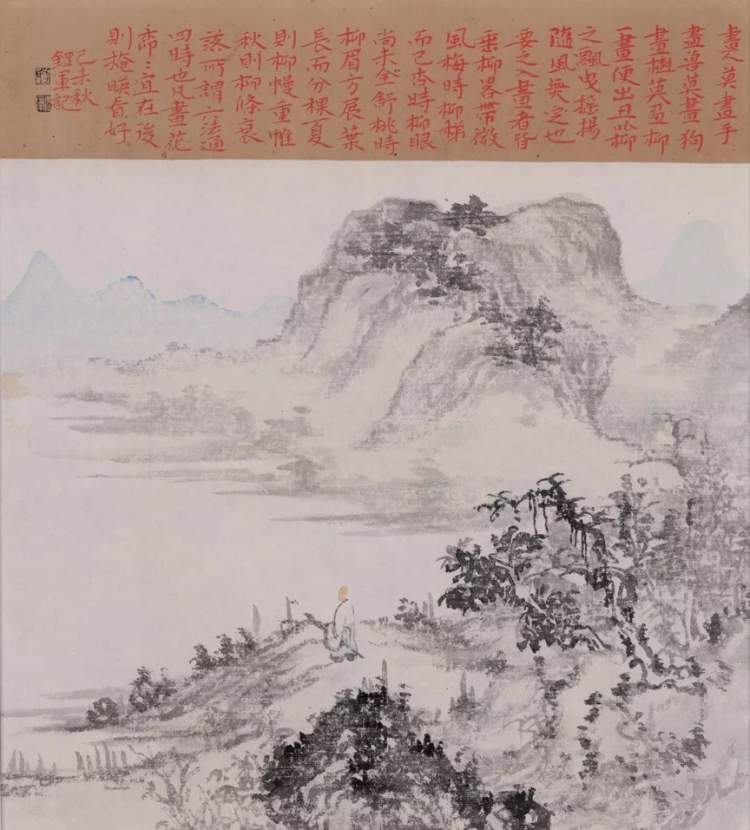 畫人莫畫手
畫萆莫畫狗
畫樹莫畫柳
一畫便出丑以柳
之飄曳搖揚
隨風無定也
要之入畫者皆
垂柳畧帶微
風梅時柳稊
而已杏時柳眼
尚未全舒桃時
柳眉方展葉
長而分稞夏
則柳幔重帷
秋則柳條衰
落所謂六法通
四時也凡畫花
亦宜在後
則掩映看好
己未秋
鋰軍記